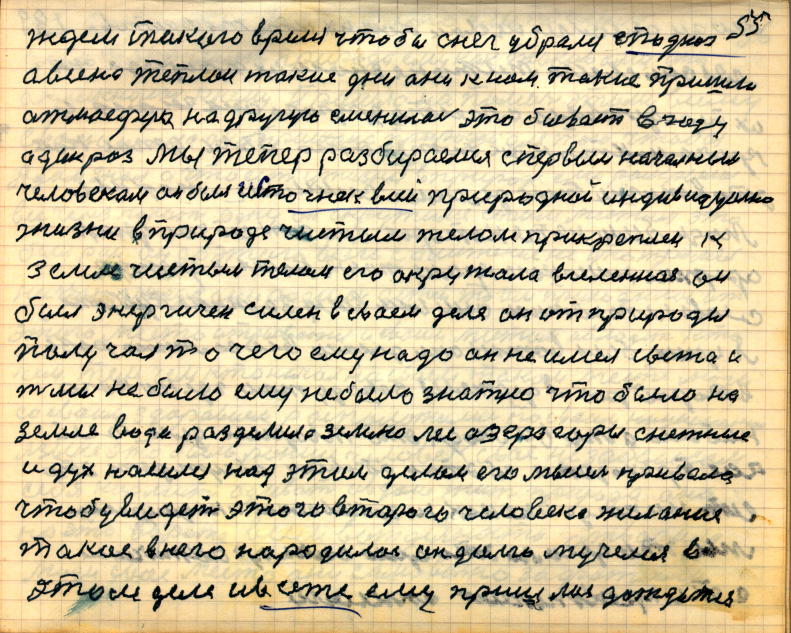 55
ждем такого время чтобы снег убрали сподног
авеено теплом такие дни они к нам такие пришли
атмасфера на другую сменилас это бывает в году
адин роз Мы тепер разбираемся спервым началным
человеком он был источнек вий природной индивидуално
жизни в природе чистым телом прикреплен к
земле чистым телом его окружала вселенная он
был энергичен силен в своем деле он от природы
получал то чего ему надо он не имел света и
тмы не было ему небыло знатно что было на
земле вода разделила землю лес озера горы снежные
и дух насился над этим делом его мысл привела
чтоб увидет этого второго человека желание
такое в него народилос он долго мучелся в
этом деле и все же ему пришлос дождатся